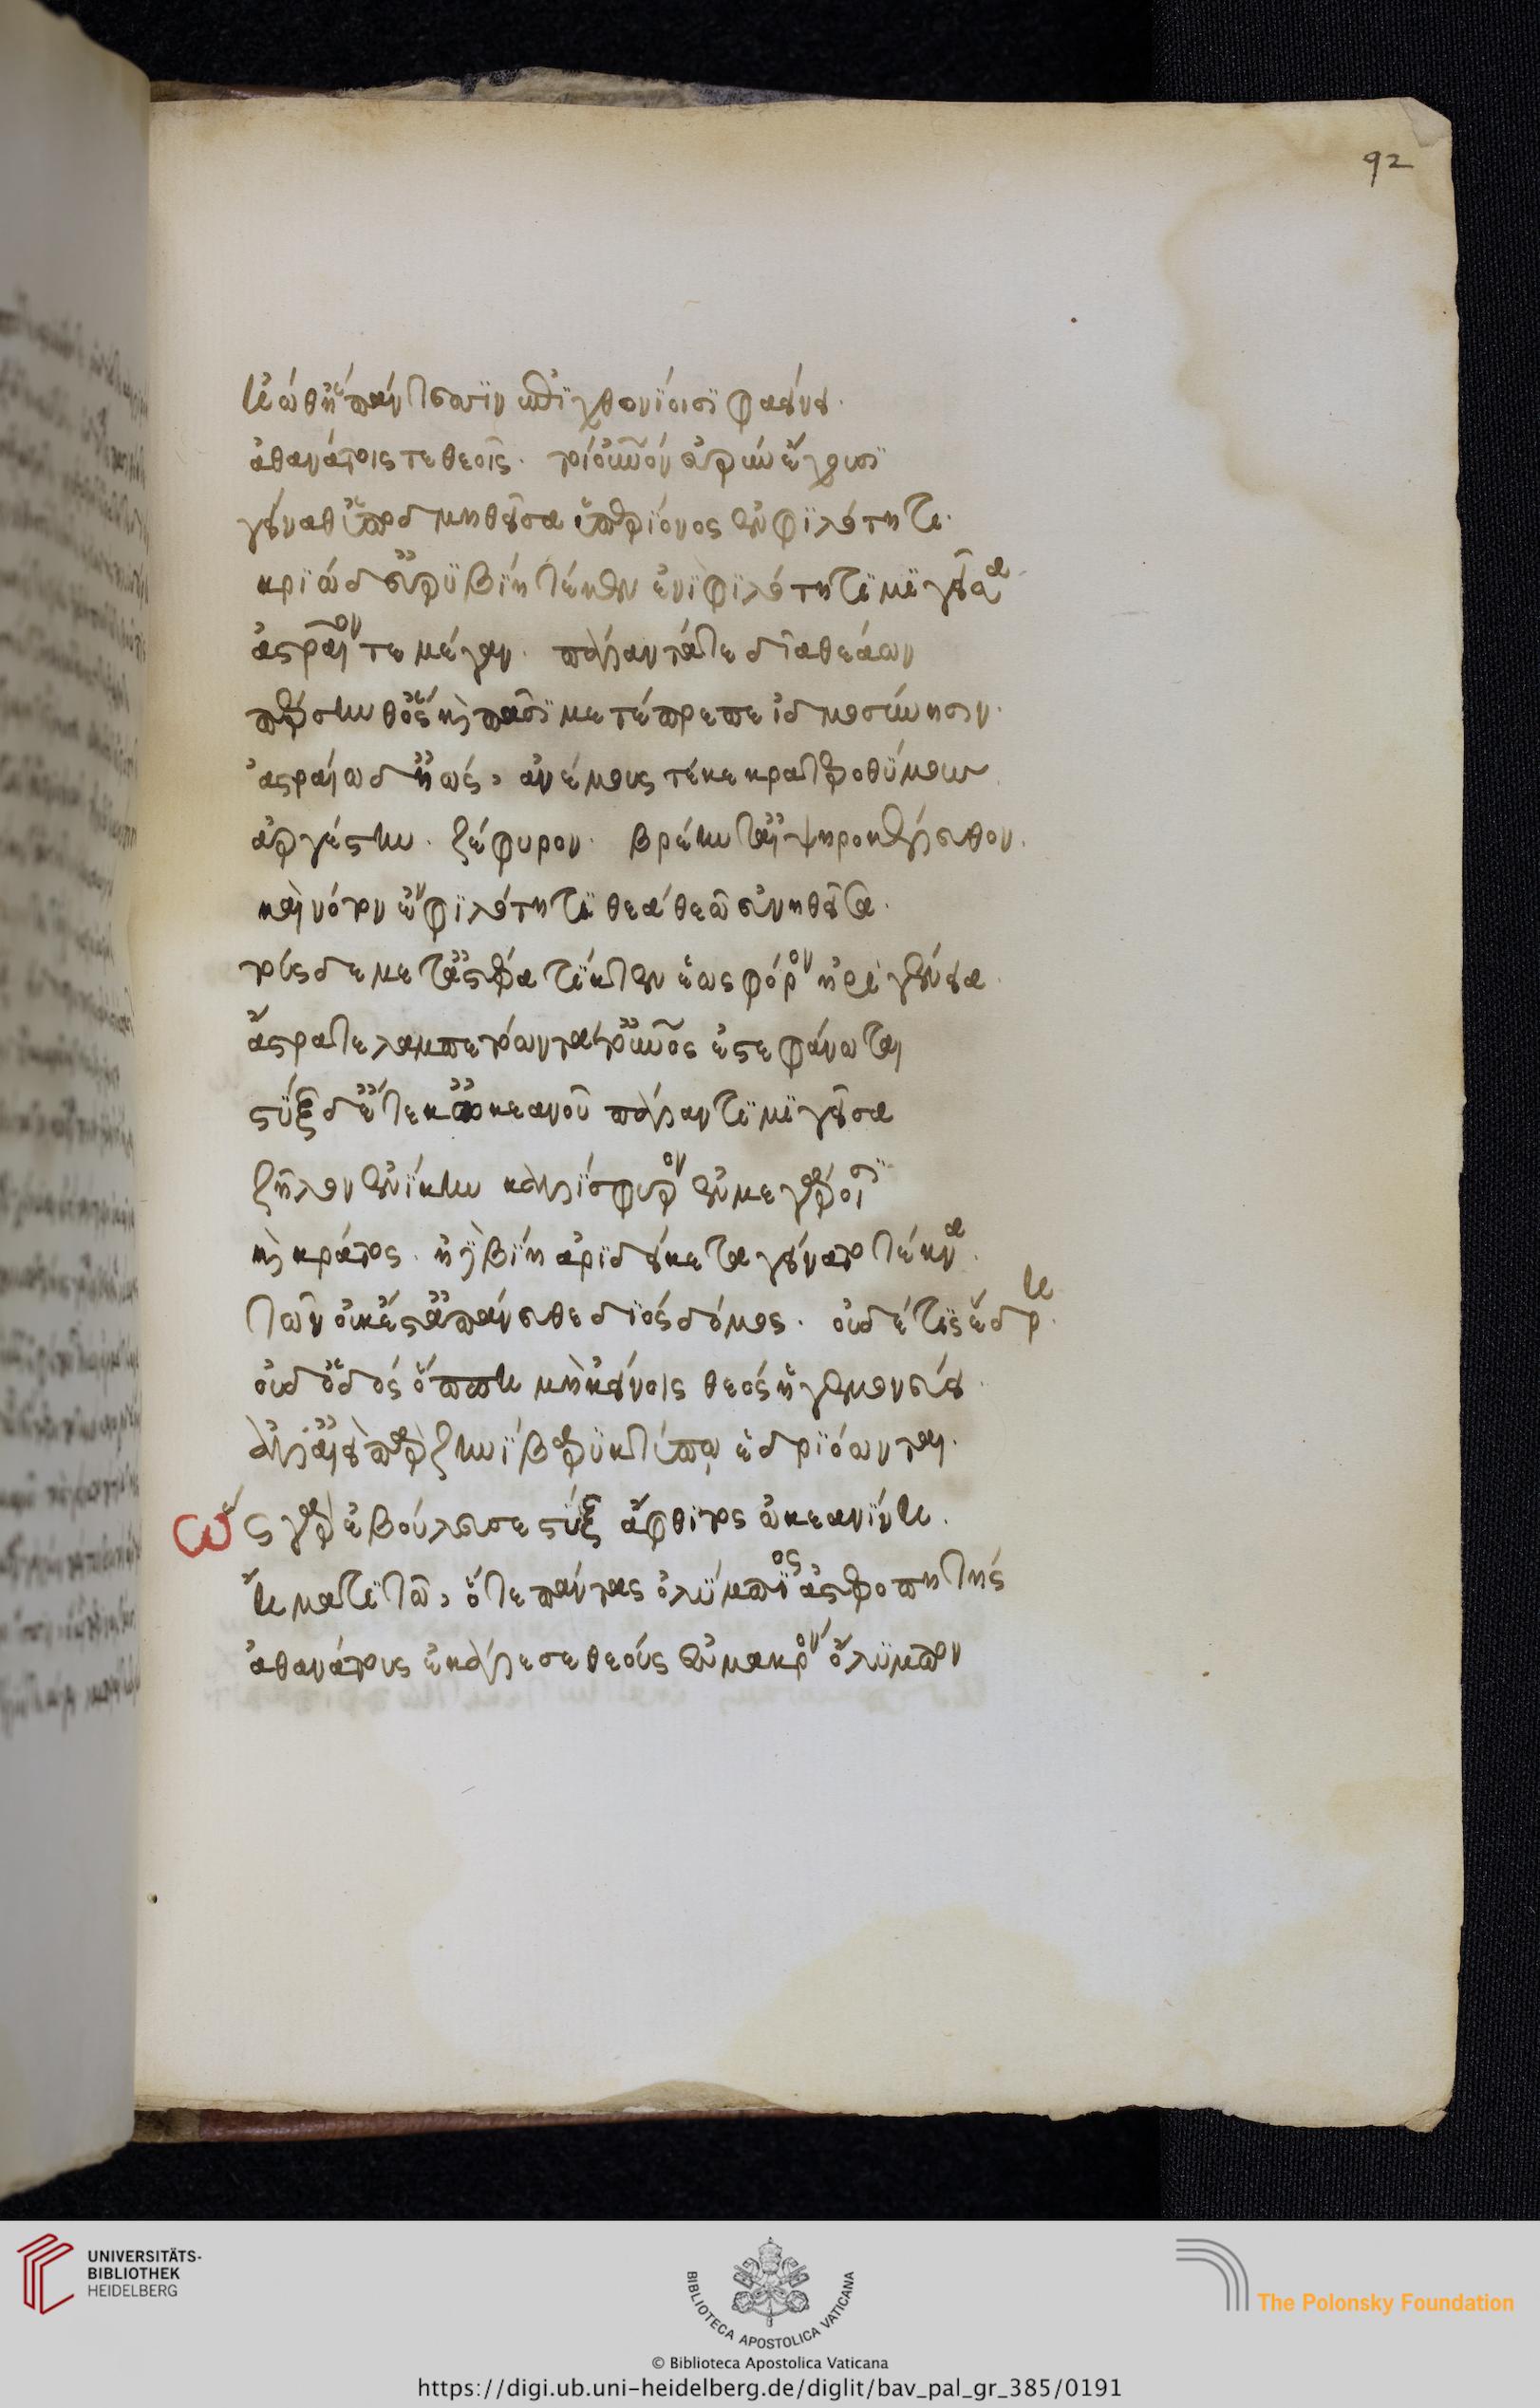 92
ἠώθ' ἣ πάντεσσιν ἐπιχθονίοισι φαείνει.
ἀθανάτοις τε θεοῖς. τοὶ οὐρανὸν εὐρὺν ἔχουσι
γείναθ' ὑποδμηθεῖσα ὑπερίονος ἐν φιλότητι.
κρίω δ' εὐρυβίη τέκεν ἐνὶ φιλότητι μιγεῖσα
ἀστραῖον τε μέγαν. πάλλαντά τε δῖα θεάων
πέρσην θ' ὃς καὶ πᾶσι μετέπρεπε ἰδμοσύνησιν.
ἀστραίω δ' ἠὼς, ἀνέμους τέκε κρατεροθύμους
ἀργέστην. ζέφυρον. βορέην τ' αἰψηροκέλευθον.
καὶ νότον ἐν φιλότητι θεὰ θεῶ εὐνηθεῖσα.
τοὺς δὲ μέτ' ἀστέρα τίκτεν ἑωσφόρον ἠριγένεια.
ἄστρα τε λαμπετόωντα τά τ' οὐρανὸς ἐστεφάνωται
στὺξ δ' ἔτεκ' ὠκεανοῦ πάλλαντι μιγεῖσα
ζῆλον καὶ νίκην καλλίσφυρον ἐν μεγάροισι
καὶ κράτος. ἠδὲ βίην ἀριδείκετα γείνατο τέκνα.
τῶν οὐκ ἔστ' ἀπάνευθε διὸς δόμος. οὐδέ τις ἕδρη.
οὐδ' ὁδὸς ὅππη μὴ κείνοις θεὸς ἡγεμονεύει.
ἀλλ' αἰεὶ πὰρ ζηνὶ βαρυκτύπω ἑδριόωνται.
ὣς γὰρ ἐβούλευσε στὺξ ἄφθιτος ὠκεανίνη.
ἤματι τῶ, ὅτε πάντας ὀλύμπιος ἀστεροπητὴς
ἀθανάτους ἐκάλεσσε θεοὺς ἐς μακρὸν ὄλυμπον
UNIVERSITÄTS-
BIBLIOTHEK
HEIDELBERG
BIBLIOTECA APOSTOLICA VATICANA
The Polonsky Foundation
© Biblioteca Apostolica Vaticana
https://digi.ub.uni-heidelberg.de/diglit/bav_pal_gr_385/0191